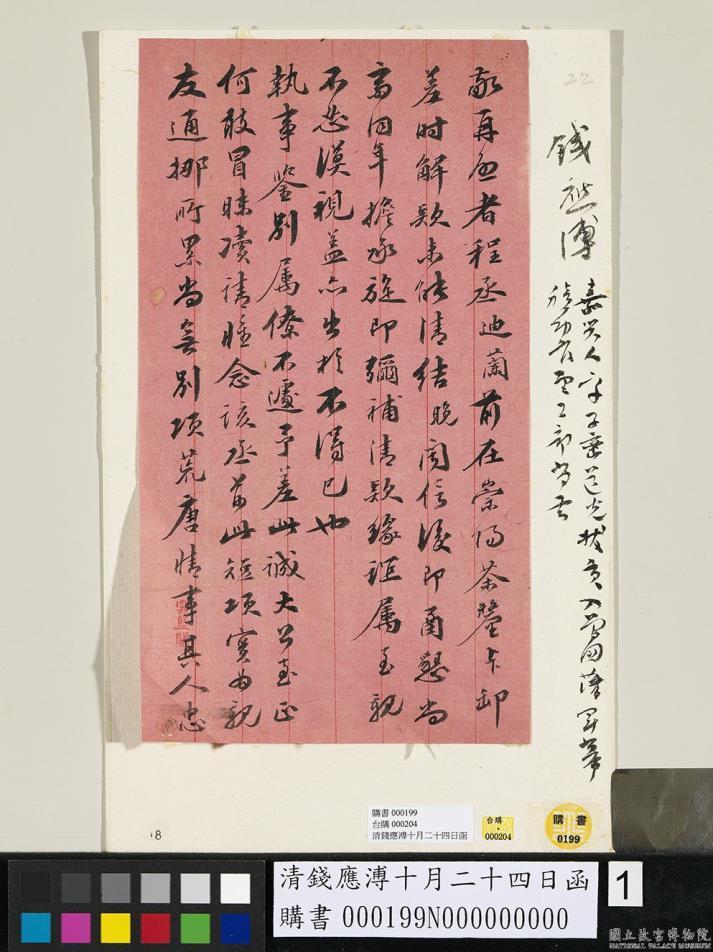 22
錢應溥
嘉興人字子密道光拔貢入曾國藩軍幕
積功官至工部尚書
敬再啟者程丞迪蘭前在崇陽茶釐卡卸
差時解款未能清結晚聞信後即函懇尚
齋同年擔承旋即彌補清款緣誼屬至親
不忍漠視蓋亦出於不得已也
執事鑒別屬僚不遽予差此誠大公至正
何敢冒昧瀆請惟念該丞前此短項實為親
友通挪所累尚無別項荒唐情事其人忠
8
購書 000199
台購 000204
清錢應溥十月二十四日函
台購
000204
購書
0199
清錢應溥十月二十四日函
購書 000199N000000000
1
國立故宮博物院
NATIONAL PALACE MUSEUM